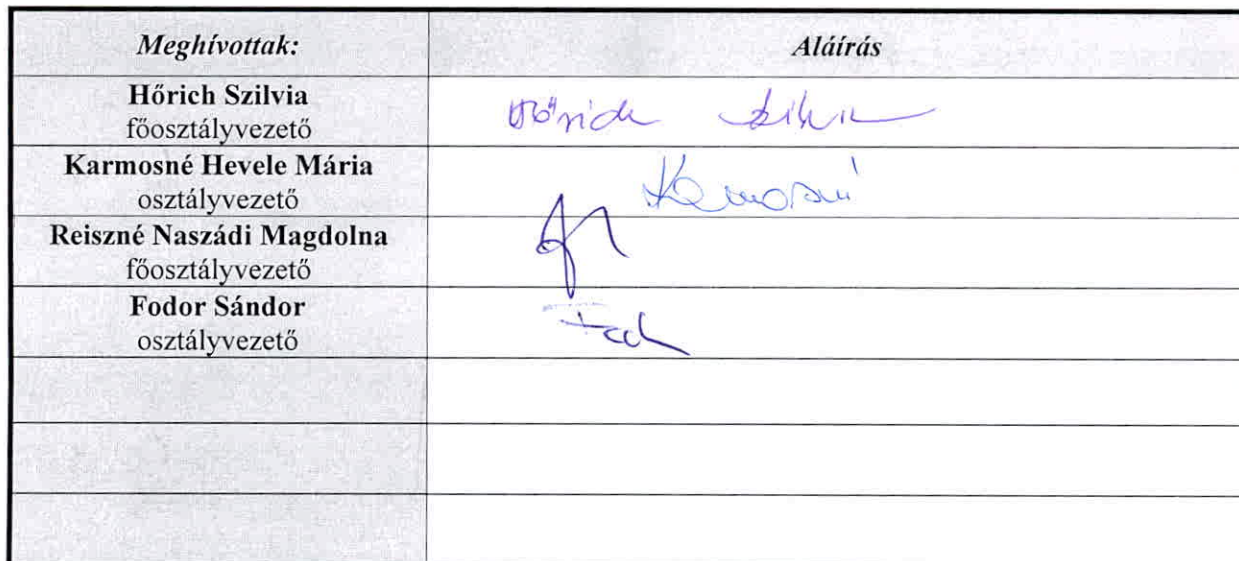 Meghívottak: Aláírás
Hőrich Szilvia
főosztályvezető
Hőrich Szilvia
Karmosné Hevele Mária
osztályvezető
Karmosné
Reiszné Naszádi Magdolna
főosztályvezető
Fodor Sándor
osztályvezető